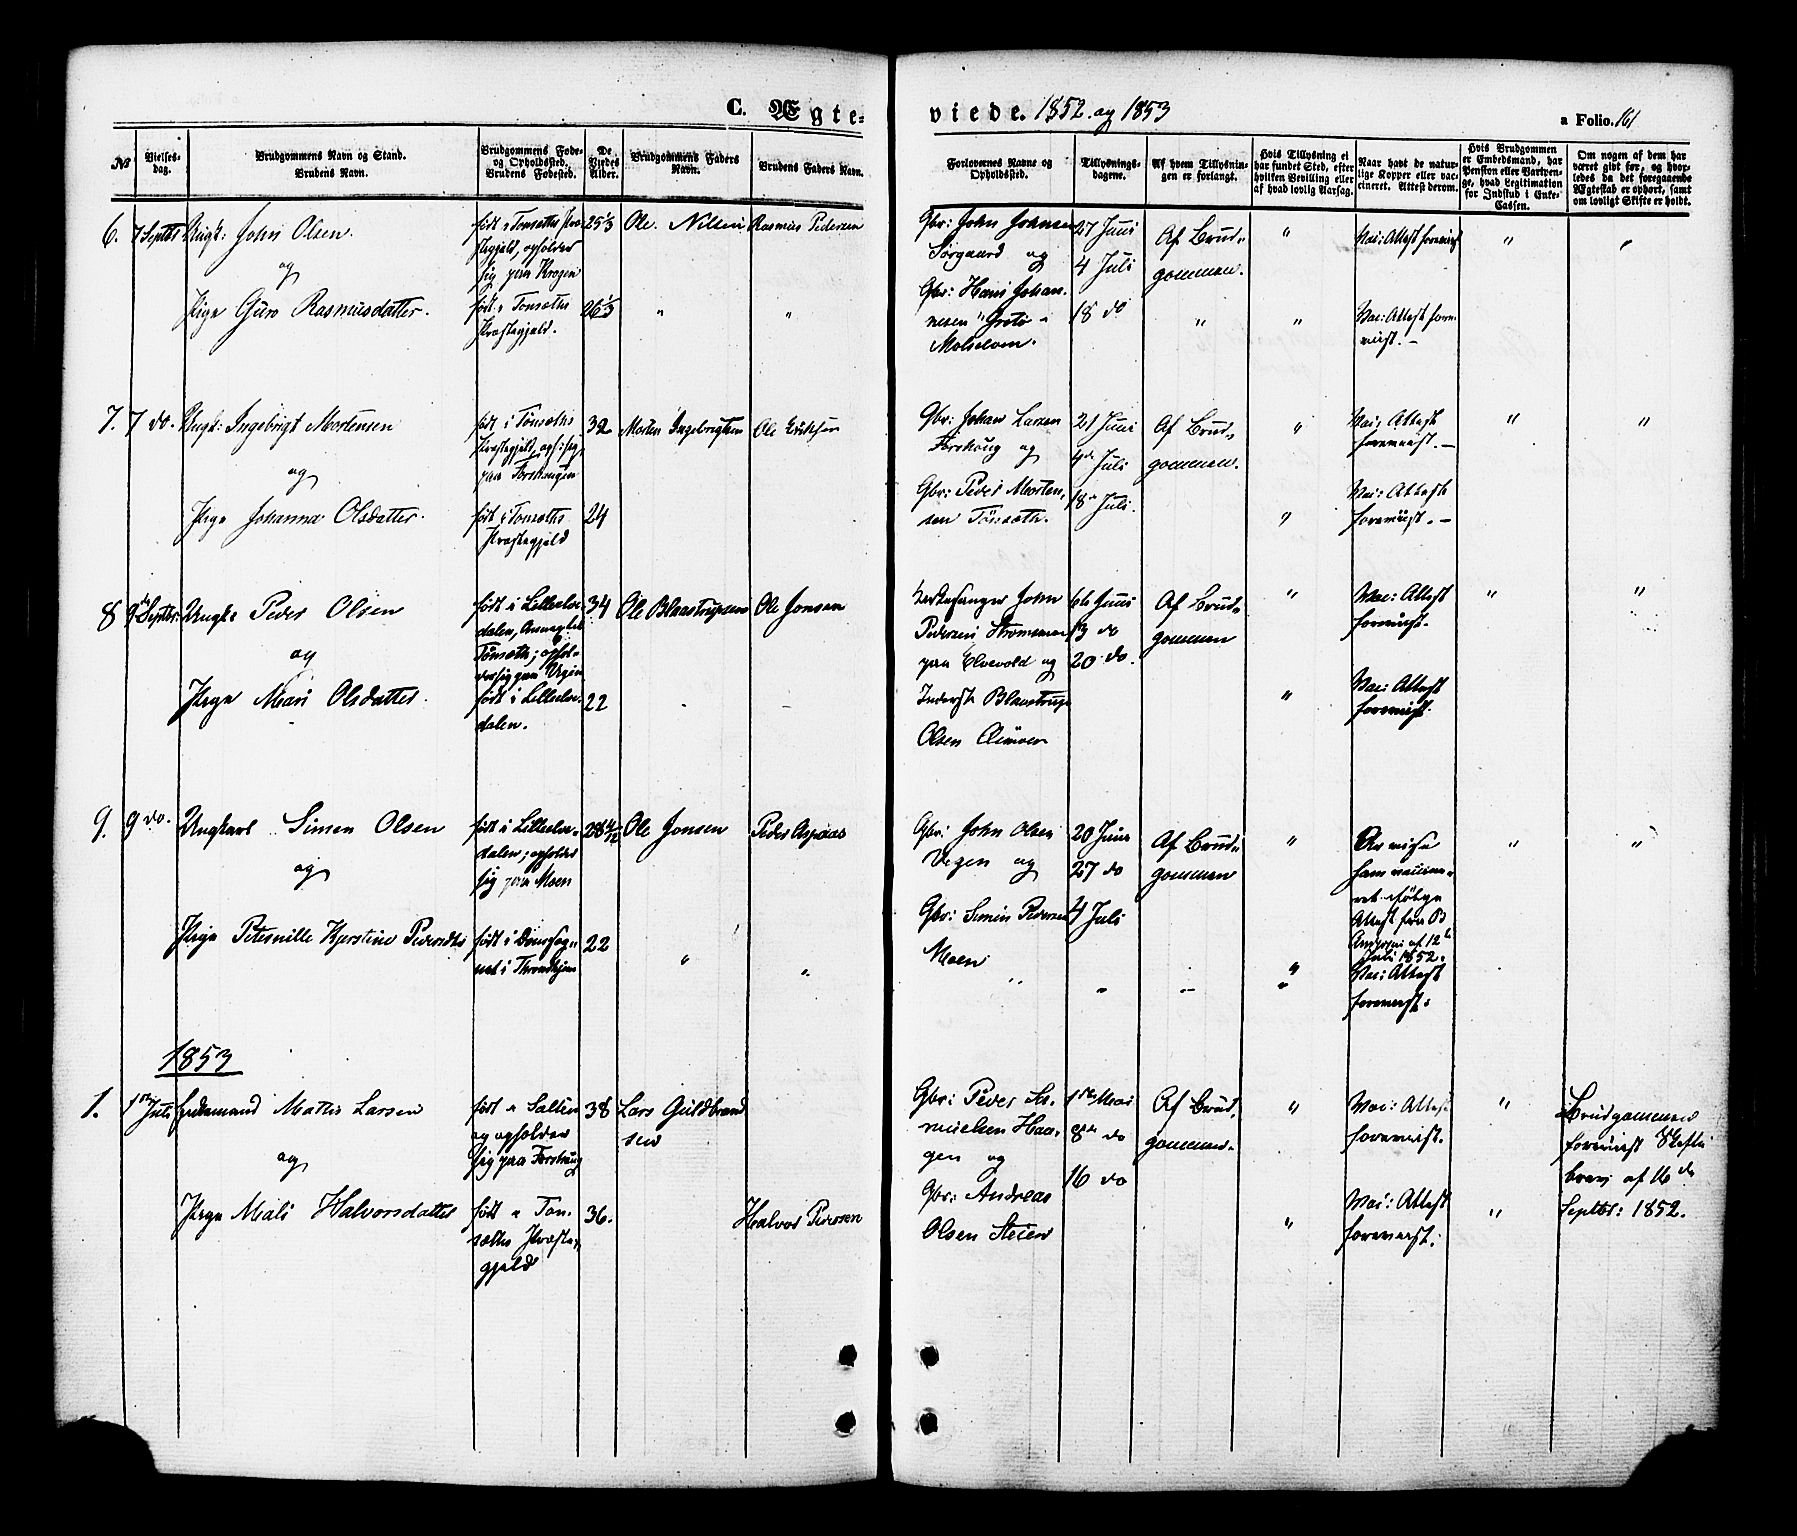 C. Ægte-
viede. 1852 og 1853
a Folio. 161
No
Vielses-
dag.
Brudgommens Navn og Stand.
Brudens Navn.
Brudgommens Føde-
og Opholdssted.
Brudens Fødested.
De
Viedes
Alder.
Brudgommens Faders
Navn.
Brudens Faders Navn.
Forlovernes Navne og
Opholdssted.
Tillysnings-
dagene.
Af hvem Tillysnin-
gen er forlangt.
Hvis Tillysning ei
har fundet Sted, efter
hvilken Bevilling eller
af hvad lovlig Aarsag.
Naar havt de natur-
lige Kopper eller vac-
cineret. Attest derom.
Hvis Brudgommen
er Embedsmand, har
Pension eller Vartpen-
ge, hvad Legitimation
for Indskud i Enke-
Cassen.
Om nogen af dem har
været gift før, og hvor-
ledes da det foregaaende
Ægteskab er ophørt, samt
om lovligt Skifte er holdt.
6. 7 Septbr: Ungk: John Olsen.
og
Pige Guro Rasmusdatter.
født i Tonsæths Præ-
stegjeld, opholder
sig paa Krogen
født i Tonsæths
Præstegjeld.
25 1/3
26 1/3
Ole Nilsen
Rasmus Pedersen
Gbr: John Johnsen
Sørgaard og
Gbr: Hans Johan-
nesen
27 Juni
4 Juli
18 do
Af Brud-
gommen.
Vac: Attest foreviist
Vac: Attest fore-
viist. -
7. 7 do. Ungk: Ingebrigt Mortensen
og
Pige Johanna Olsdatter.
født i Tönsæths
Præstegjeld, oph: sig
paa Forshaugen
født i Tonsæths
Præstegjeld
32
24
Morten Ingebrigtsen
Ole
Gbr: Johan Larsen
Forshoug og
Gbr: Peder Morten-
sen Tönsæth.
21 Juni
4de Juli
18de Juli.
Af Brud-
gommen.
Vac: Attest
foreviist. -
Vac: Attest
foreviist. -
8 9de Septbr: Ungk: Peder Olsen
og
Pige Mari Olsdatter.
født i Lilleelve-
dalen, Annexet til
Tönsæth; ophol-
der sig paa Vegen
født i Lilleelve-
dalen.
34
22
Ole Blaastrupsen
Ole Jonsen
John
Pedersen Strømmen
paa Elvevold og
Inderst Blaastrup
Olsen
6te Juni
13 do
20 do.
Af Brud-
gommen
Vac: Attest
foreviist.
Vac: Attest
foreviist.
9. 9 do. Ungkarl Simen Olsen
og
Pige Peternille Kjerstine Pedersdtr
født i Lilleelve-
dalen; opholder
sig paa Moen
født i Domsog-
net i Throndhjem
28 4/12
22
Ole Jonsen
Peder Aspaas
Gbr: John Olsen
Vegen og
Gbr: Simen Pedersen
Moen
20 Juni
27 do
4 Juli
Af Brud-
gommen
ham vaccine-
ret ifølge
Attest fra
af 12te
Juli 1852.
Vac: Attest
foreviist.
1853
1. 1ste Juli Enkemand Mathis Larsen
og
Pige Mali Halvorsdatter
født i Salten
og opholder
sig paa Forshaug
født i Ton-
sæths Præste-
gjeld
38
36.
Lars Guldbrand
sen
Halvor Pedersen
Gbr: Peder Sa-
muelsen Hau-
gen og
Gbr: Andreas
Olsen Steien
1ste Mai
8de do
16 do
Af Brud-
gommen.
Vac: Attest
foreviist.
Vac: Attest
foreviist.
Brudgommen
foreviist Skifte
brev af 16de
Septbr: 1852.